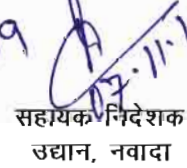 9
07.11.1
सहायक निदेशक
उद्यान, नवादा